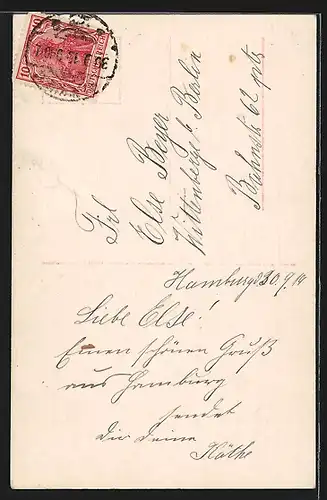 10
Frl
Else Beyer
Wittenberge b.
Bahnstr 62 ptr
Hamburg d 30.9.14
Liebe Else!
Einen schönen Gruß
aus Hamburg
sendet
dir deine
Käthe